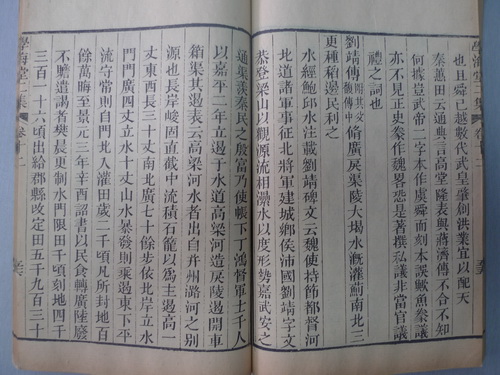 也且舜已越數代武皇肇創洪業宜以配天
秦蕙田云通典言高堂隆表與蔣濟傳不合不知
何據豈武帝二字本作虞舜而刻本誤歟魚豢議
亦不見正史豢作魏畧恐是著撰私議非當官議
禮之詞也
劉靖傳附其父馥傳中脩廣戾渠陵大堨水溉灌薊南北三
更種稻邊民利之
水經鮑邱水注載劉靖碑文云魏使持節都督河
北道諸軍事征北將軍建城鄉侯沛國劉靖字文
恭登梁山以觀源流相㶟水以度形勢嘉武安之
通渠羨秦民之殷富乃使帳下丁鴻督軍士千人
以嘉平二年立水道高梁河造戾陵遏開車
箱渠其遏表云高梁河水者出自并州潞河之別
源也長岸峻固直截中流積石籠以爲主遏高一
丈東西長三十丈南北廣七十餘步依北岸立水
門門廣四丈立水十丈山水暴發則乘遏東下平
流守常則自門北入灌田歲二千頃凡所封地百
餘萬畮至景元三年辛酉詔書以民食轉廣陸廢
不贍遣謁者樊晨更制水門限田千頃刻地四千
三百一十六頃出給郡縣改定田五千九百三十
學海堂二集 卷十二